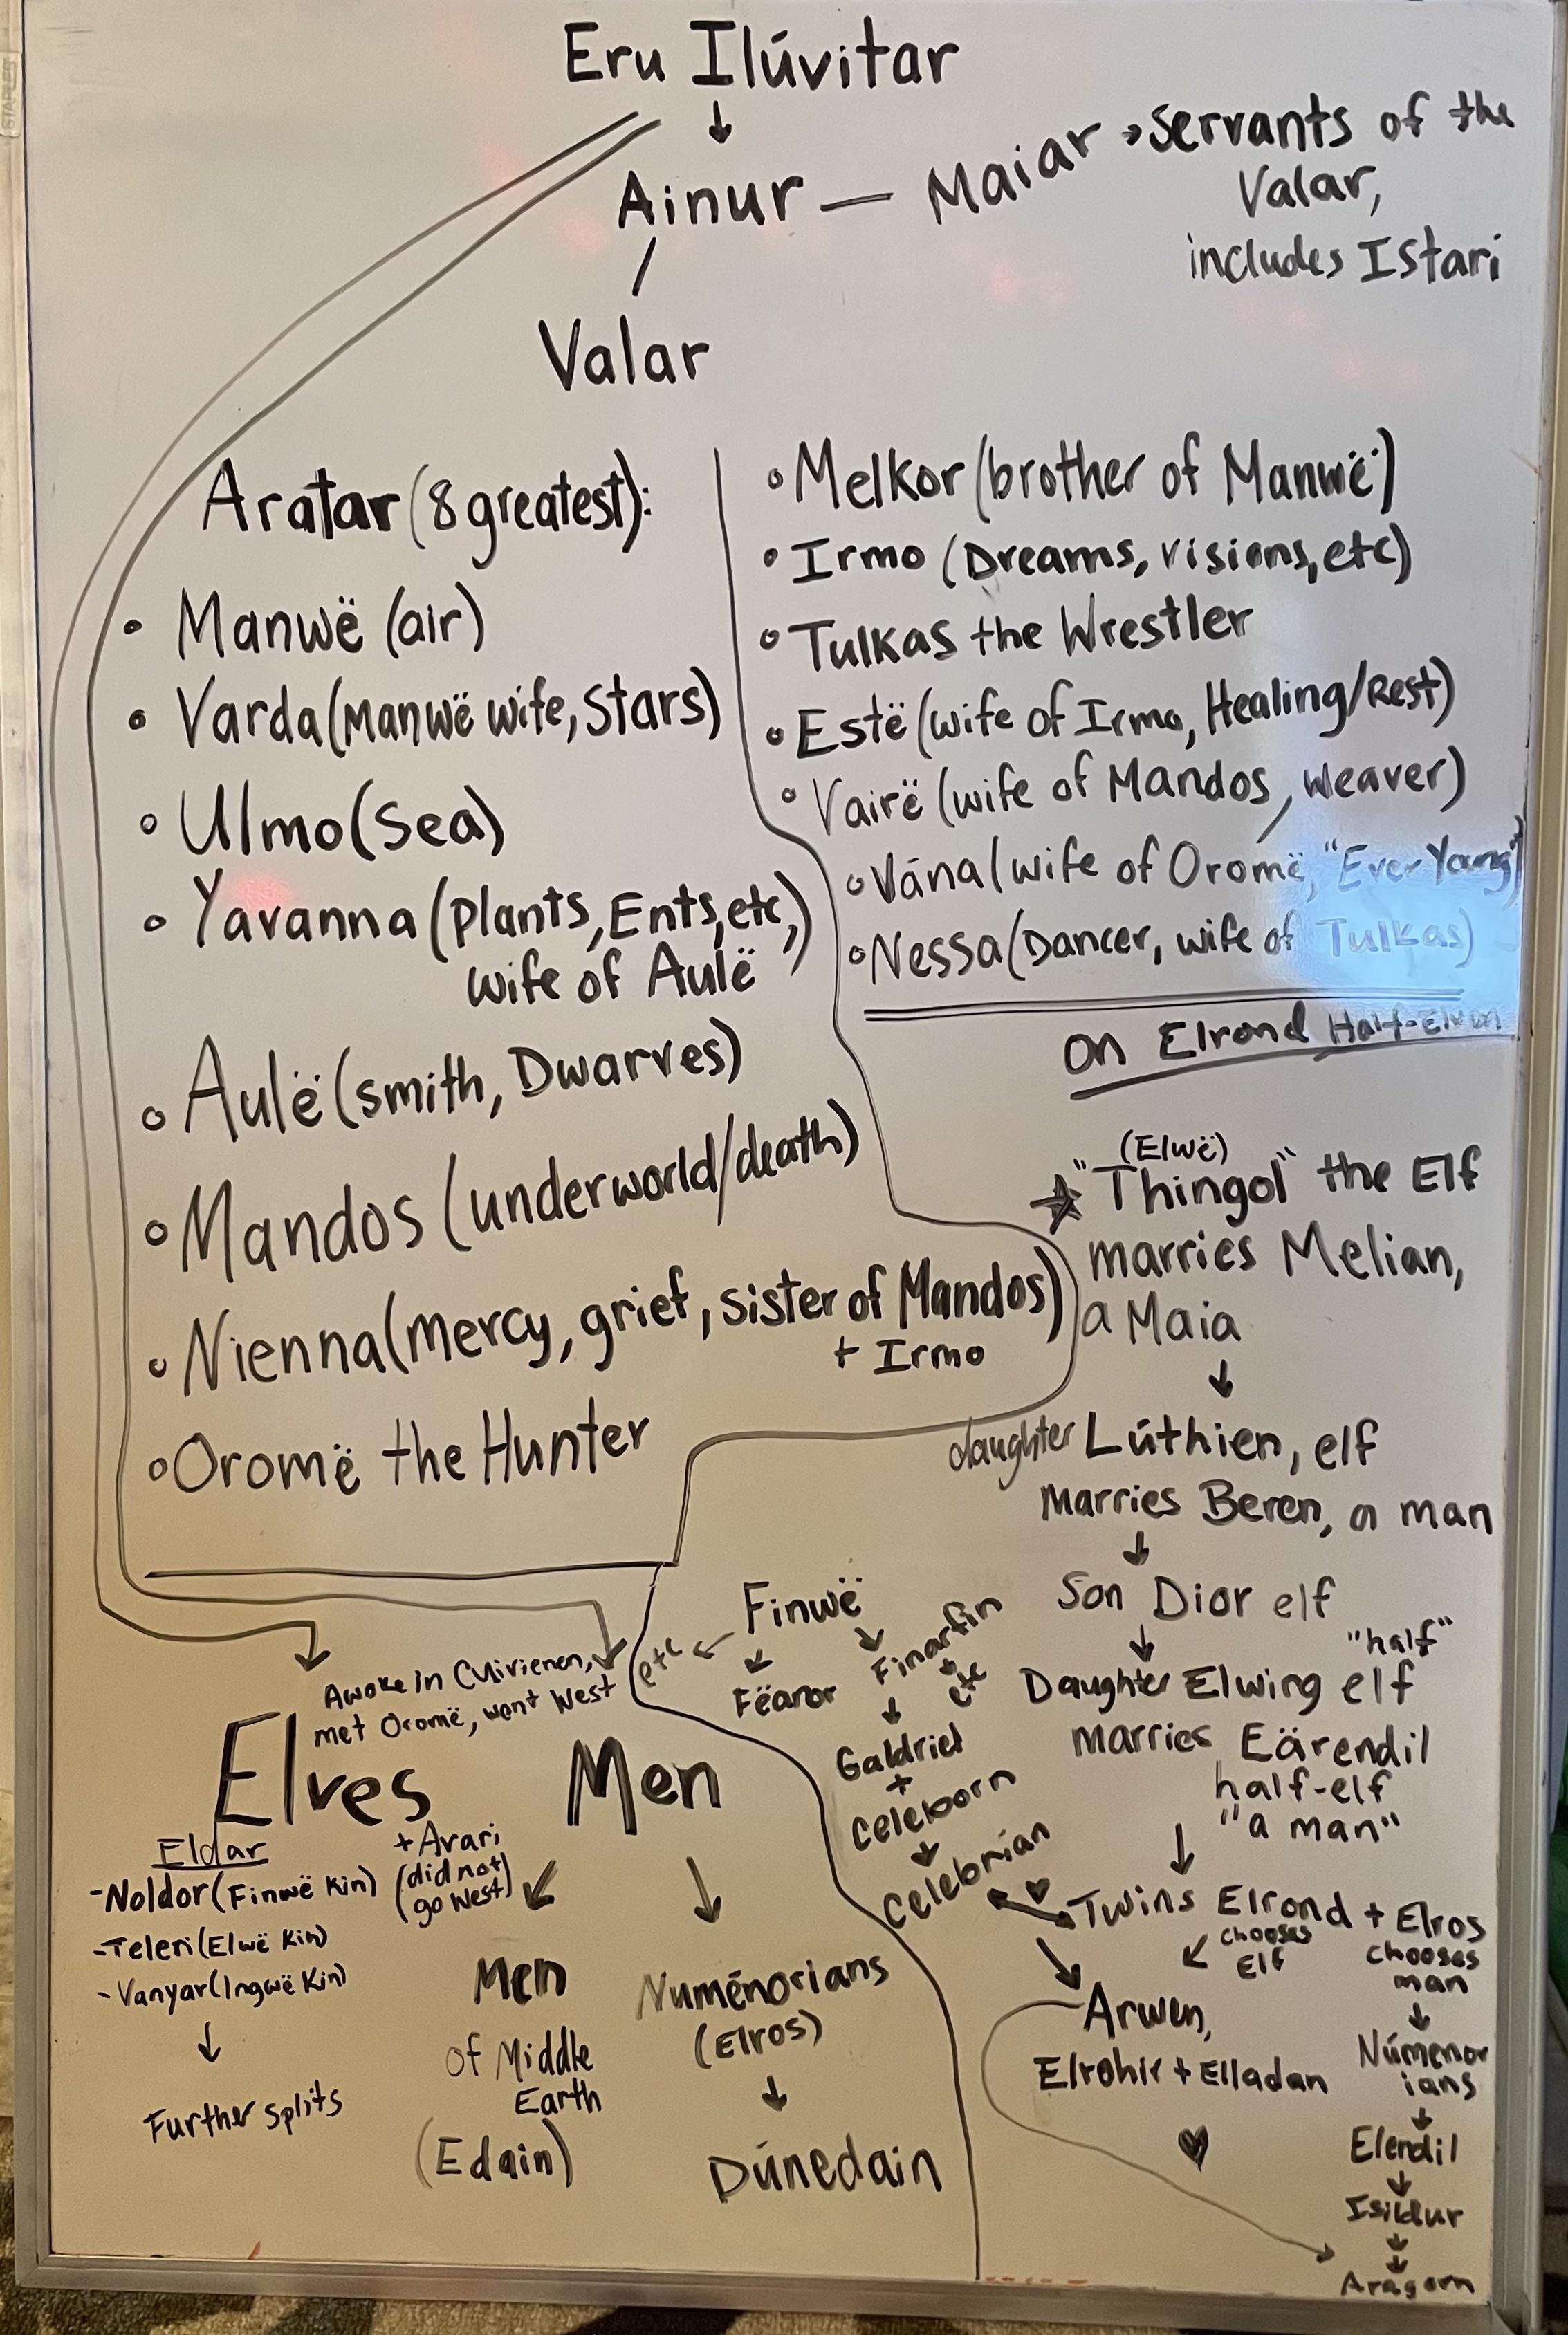 STAPLES
Eru Ilúvitar
Ainur — Maiar → Servants of the
Valar,
includes Istari
Valar
Aratar (8 greatest):
• Manwë (air)
• Varda (Manwë wife, Stars)
• Ulmo (Sea)
• Yavanna (plants, Ents, etc,)
wife of Aulë
• Aulë (smith, Dwarves)
• Mandos (underworld/death)
• Nienna (mercy, grief, sister of Mandos)
+ Irmo
• Oromë the Hunter
• Melkor (brother of Manwë)
• Irmo (Dreams, visions, etc)
• Tulkas the Wrestler
• Estë (wife of Irmo, Healing/Rest)
• Vairë (wife of Mandos, weaver)
• Vána (wife of Oromë, "Ever Young")
• Nessa (Dancer, wife of Tulkas)
On Elrond Half-Elven
(Elwë)
"Thingol" the Elf
marries Melian,
a Maia
daughter Lúthien, elf
Marries Beren, a man
Son Dior elf
"half"
Daughter Elwing elf
marries Eärendil
half-elf
"a man"
Twins Elrond + Elros
chooses
Elf
chooses
man
Arwen,
Elrohir + Elladan
Númenor
ians
Elendil
Isildur
Aragorn
Finwë
etc
Fëanor
Finarfin
etc
Galdriel
+
Celeborn
Celebrian
Awoke in Cuivienen,
met Oromë, went West
Elves
Eldar
- Noldor (Finwë Kin)
- Teleri (Elwë Kin)
- Vanyar (Ingwë Kin)
Further splits
+ Avari
(did not
go West)
Men
Men
of Middle
Earth
(Edain)
Numénorians
(Elros)
Dúnedain